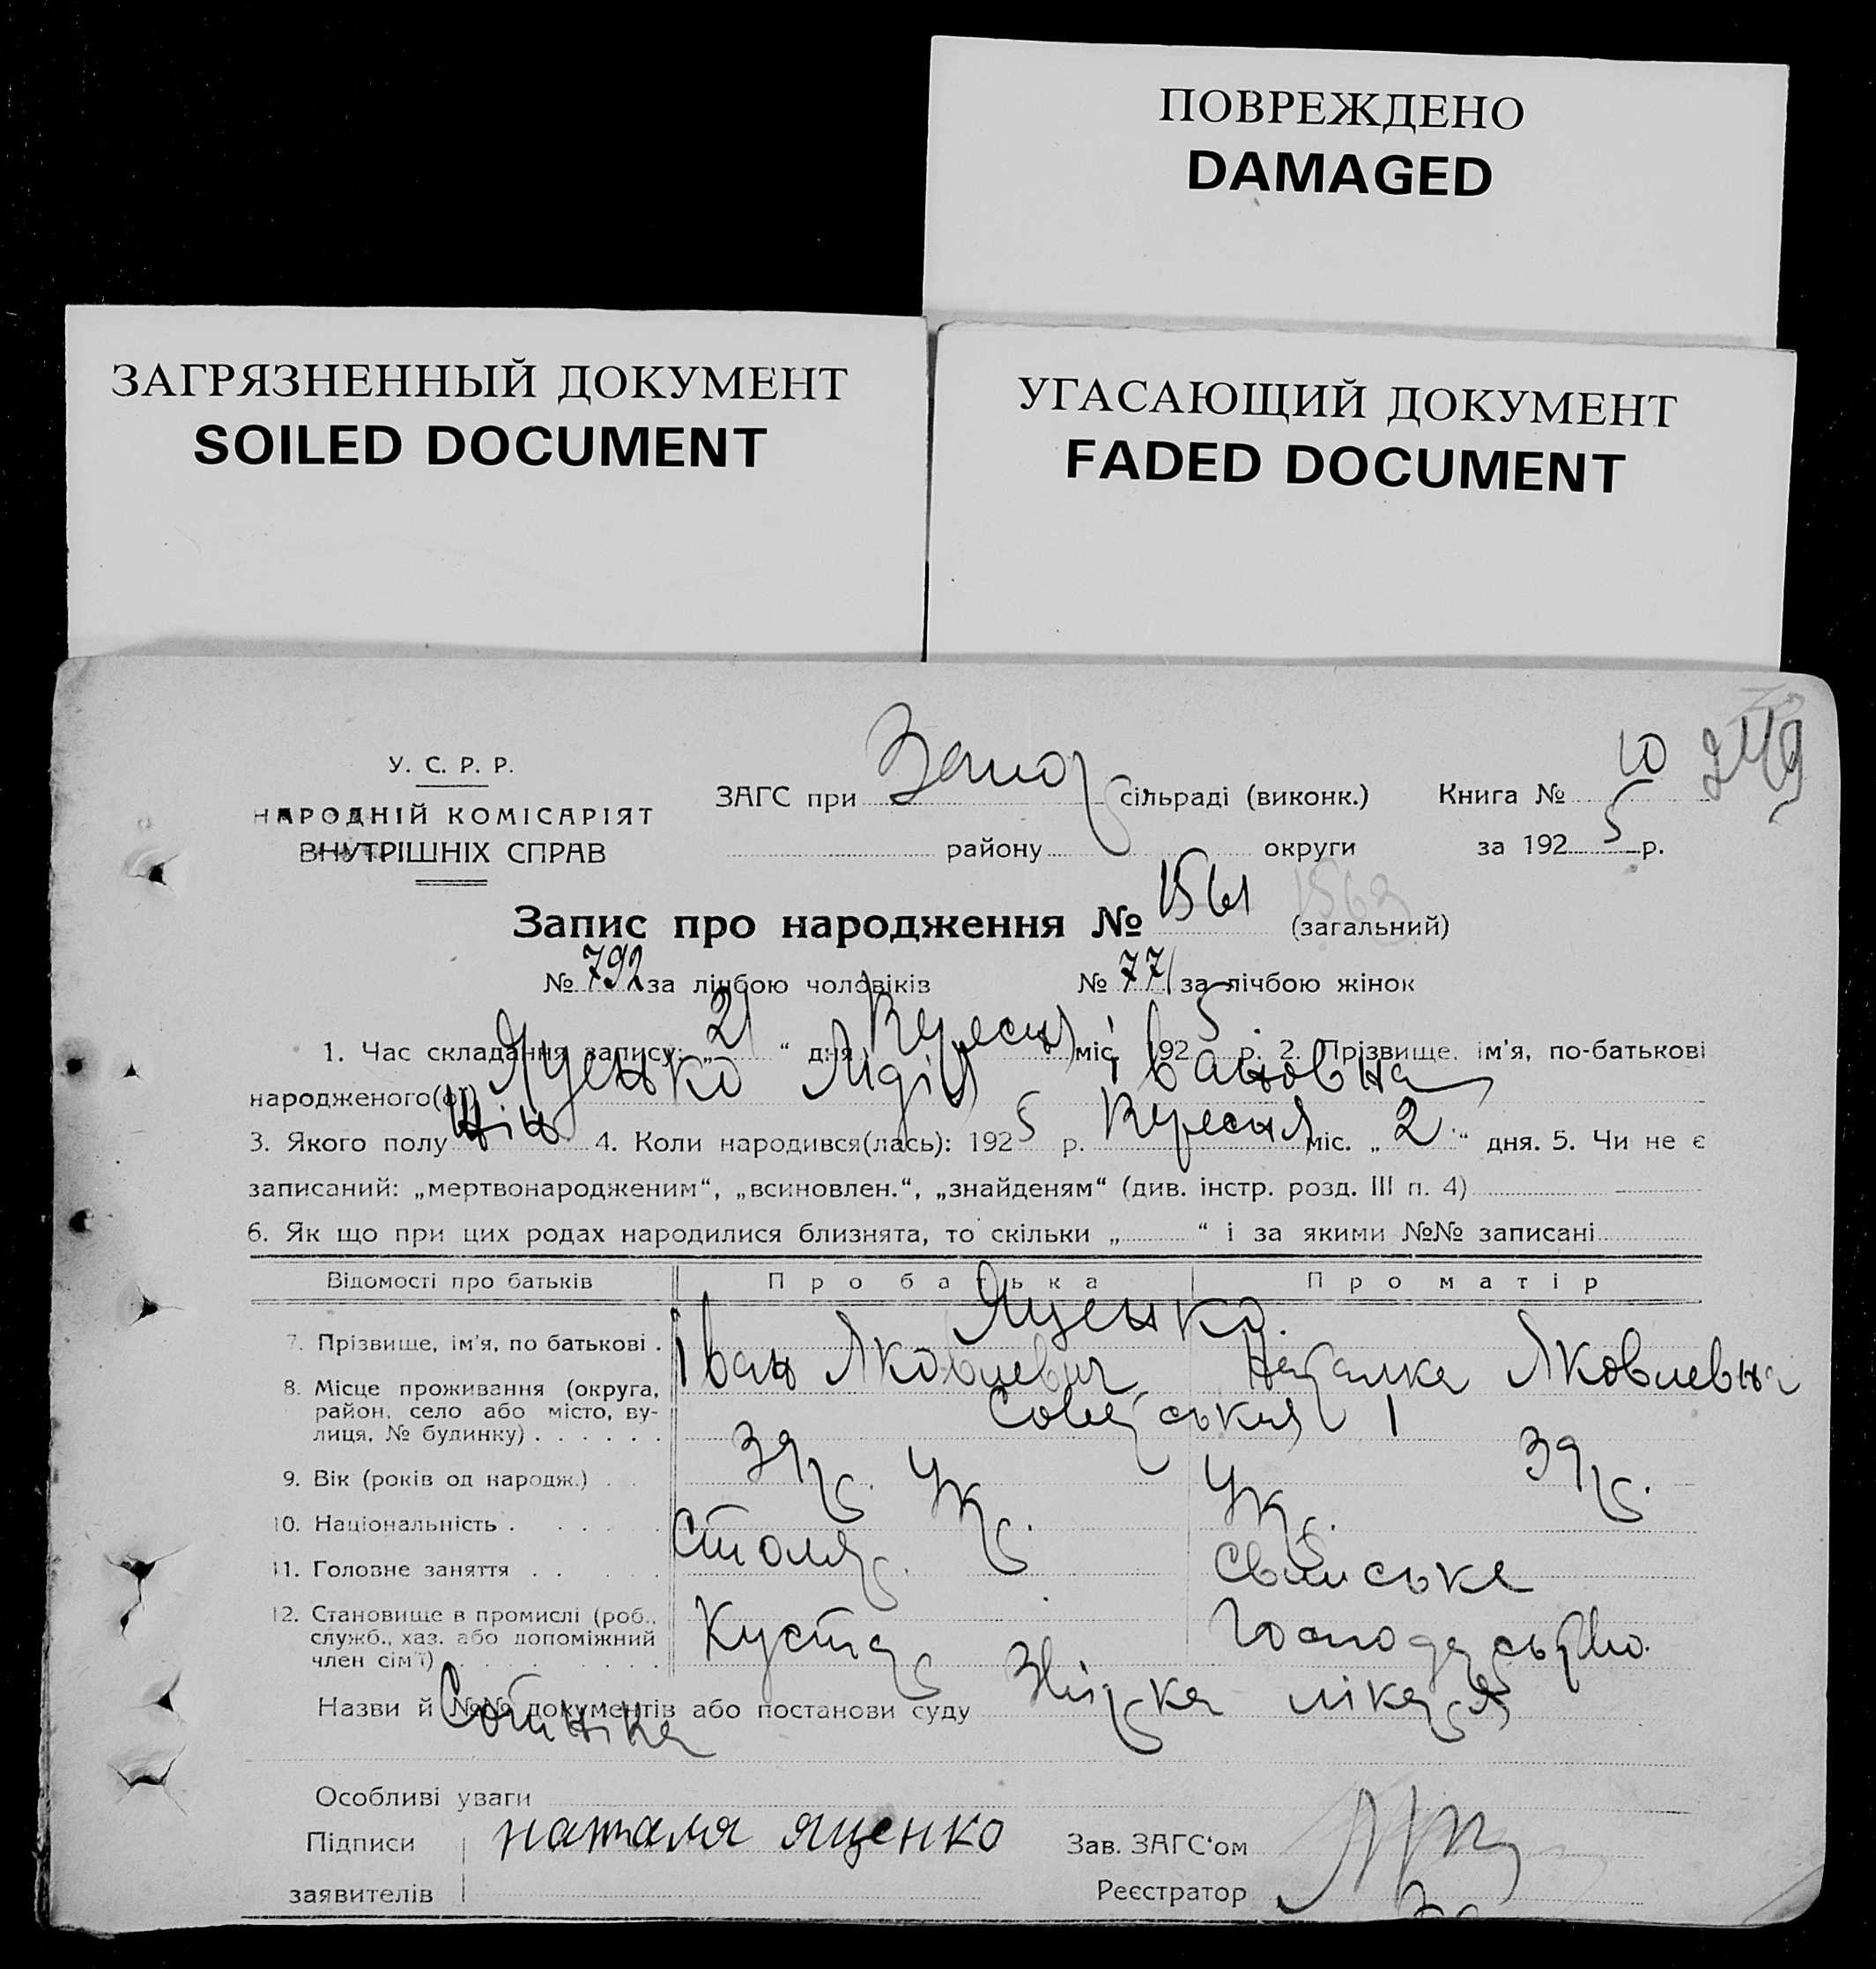 ПОВРЕЖДЕНО
DAMAGED
ЗАГРЯЗНЕННЫЙ ДОКУМЕНТ
SOILED DOCUMENT
УГАСАЮЩИЙ ДОКУМЕНТ
FADED DOCUMENT
10 249
У. С. Р. Р.
НАРОДНІЙ КОМІСАРІЯТ
ВНУТРІШНІХ СПРАВ
ЗАГС при Запор сільраді (виконк.) Книга №
району округи за 1925 р.
Запис про народження № 1561 1563 (загальний)
№ 792 за лічбою чоловіків № 771 за лічбою жінок
1. Час складання запису: „21“ дня Вересня міс. 1925 р. 2. Прізвище, ім'я, по-батькові
народженого(ої) Яценко Лідія Івановна
3. Якого полу жін. 4. Коли народився(лась): 1925 р. Вересня міс. „2“ дня. 5. Чи не є
записаний: „мертвонародженим“, „всиновлен.“, „знайденям“ (див. інстр. розд. III п. 4)
6. Як що при цих родах народилися близнята, то скільки „ “ і за якими №№ записані
Відомості про батьків Про батька Про матір
Яценко.
7. Прізвище, ім'я, по батькові . Іван Яковлевич Наталка Яковлевна
8. Місце проживання (округа, район, село або місто, вулиця, № будинку) Советська 1
9. Вік (років од народж.) 39 р. 39 р.
10. Національність . Укр. Укр.
11. Головне заняття . . Столяр. Свийське
12. Становище в промислі (роб., служб., хаз. або допоміжний член сім'ї) Кустар Господарство.
Назви й №№ документів або постанови суду Звірка лікаря
Сотніка
Особливі уваги
Підписи наталя яценко Зав. ЗАГС'ом
заявителів Реєстратор